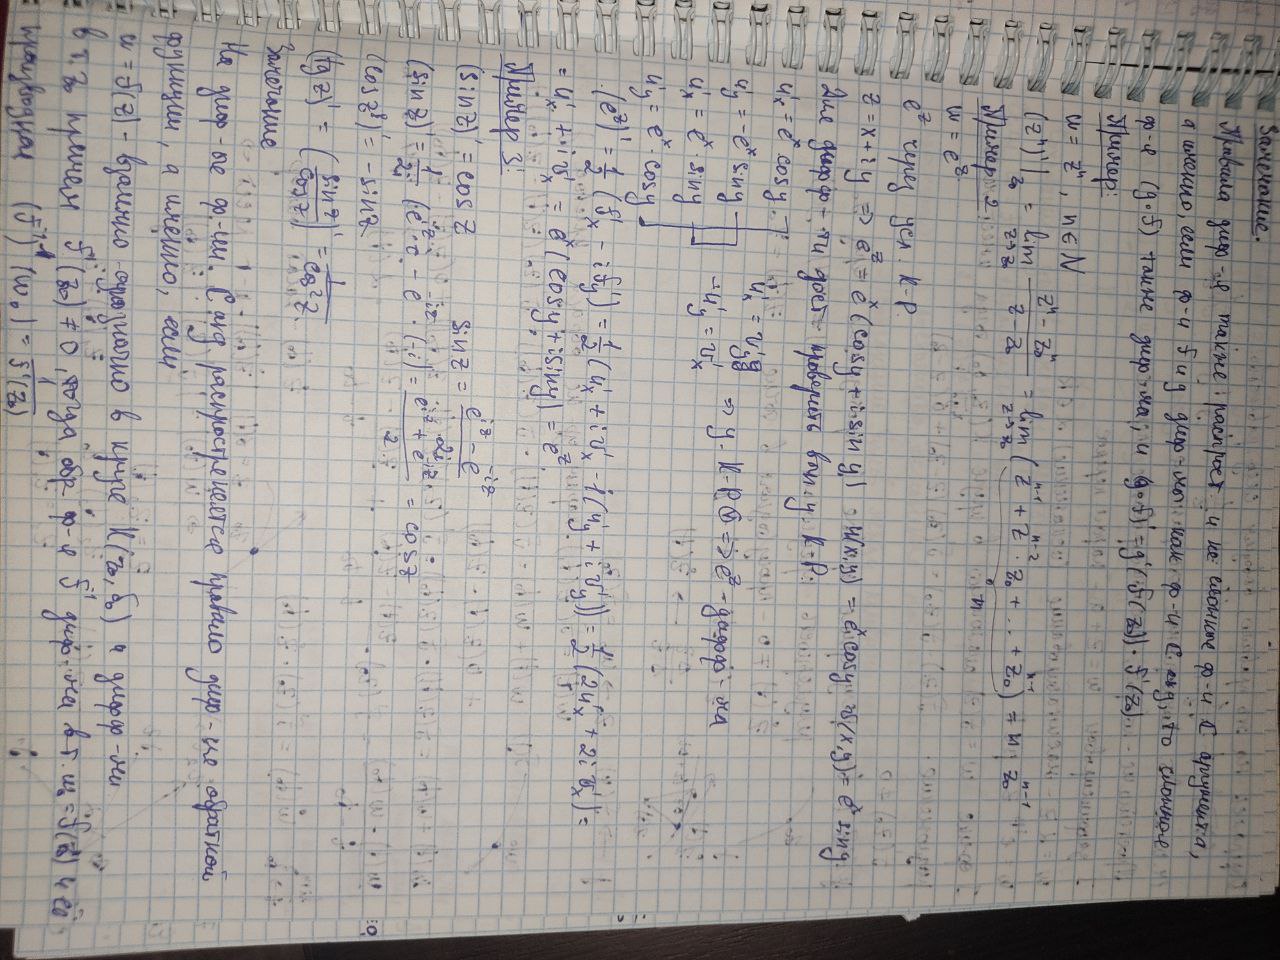 Замечание.
Правило диф-я также распрост. и на сложные ф-и С аргумента,
а именно, если ф-и f и g диф-мы как ф-и С пер, то сложное
ф-я (g∘f) также диф-ма, и (g∘f)' = g'(f(z₀))·f'(z₀)
Пример:
w = zⁿ, n∈N
(zⁿ)'|z₀ = lim z→z₀ (zⁿ - z₀ⁿ)/(z - z₀) = lim z→z₀ (zⁿ⁻¹ + zⁿ⁻²·z₀ + ... + z₀ⁿ⁻¹) = n z₀ⁿ⁻¹
n
Пример 2.
w = e^z
e^z удов усл. К-Р
z = x + iy ⇒ e^z = e^x(cos y + i sin y) u(x,y) = e^x cos y v(x,y) = e^x sin y
Для дифф-ти дост. проверить вып. у К-Р:
u'x = e^x cos y
u'y = -e^x sin y u'x = v'y
v'x = e^x sin y -u'y = v'x ⇒ у. К-Р ⇒ e^z - дифф-ма
v'y = e^x · cos y
(e^z)' = 1/2 (f'x - i f'y) = 1/2 (u'x + i v'x - i(u'y + i v'y)) = 1/2 (2u'x + 2i v'x) =
= u'x + i v'x = e^x(cos y + i sin y) = e^z
Пример 3.
(sin z)' = cos z sin z = (e^iz - e^-iz)/2i
(sin z)' = 1/2i (e^iz·i - e^-iz·(-i)) = (e^iz + e^-iz)/2 = cos z
(cos z)' = -sin z
(tg z)' = (sin z/cos z)' = 1/cos² z
Замечание
На диф-ые ф-ии С пер распространяется правило диф-ия обратной
функции, а именно, если
w = f(z) - взаимно-однозначно в круге K(z₀, δ₀) и дифф-ма
в т. z₀ причем f'(z₀) ≠ 0, тогда обр. ф-я f⁻¹ диф-ма в т. w₀ = f(z₀) и её
производная (f⁻¹)'(w₀) = 1/f'(z₀)